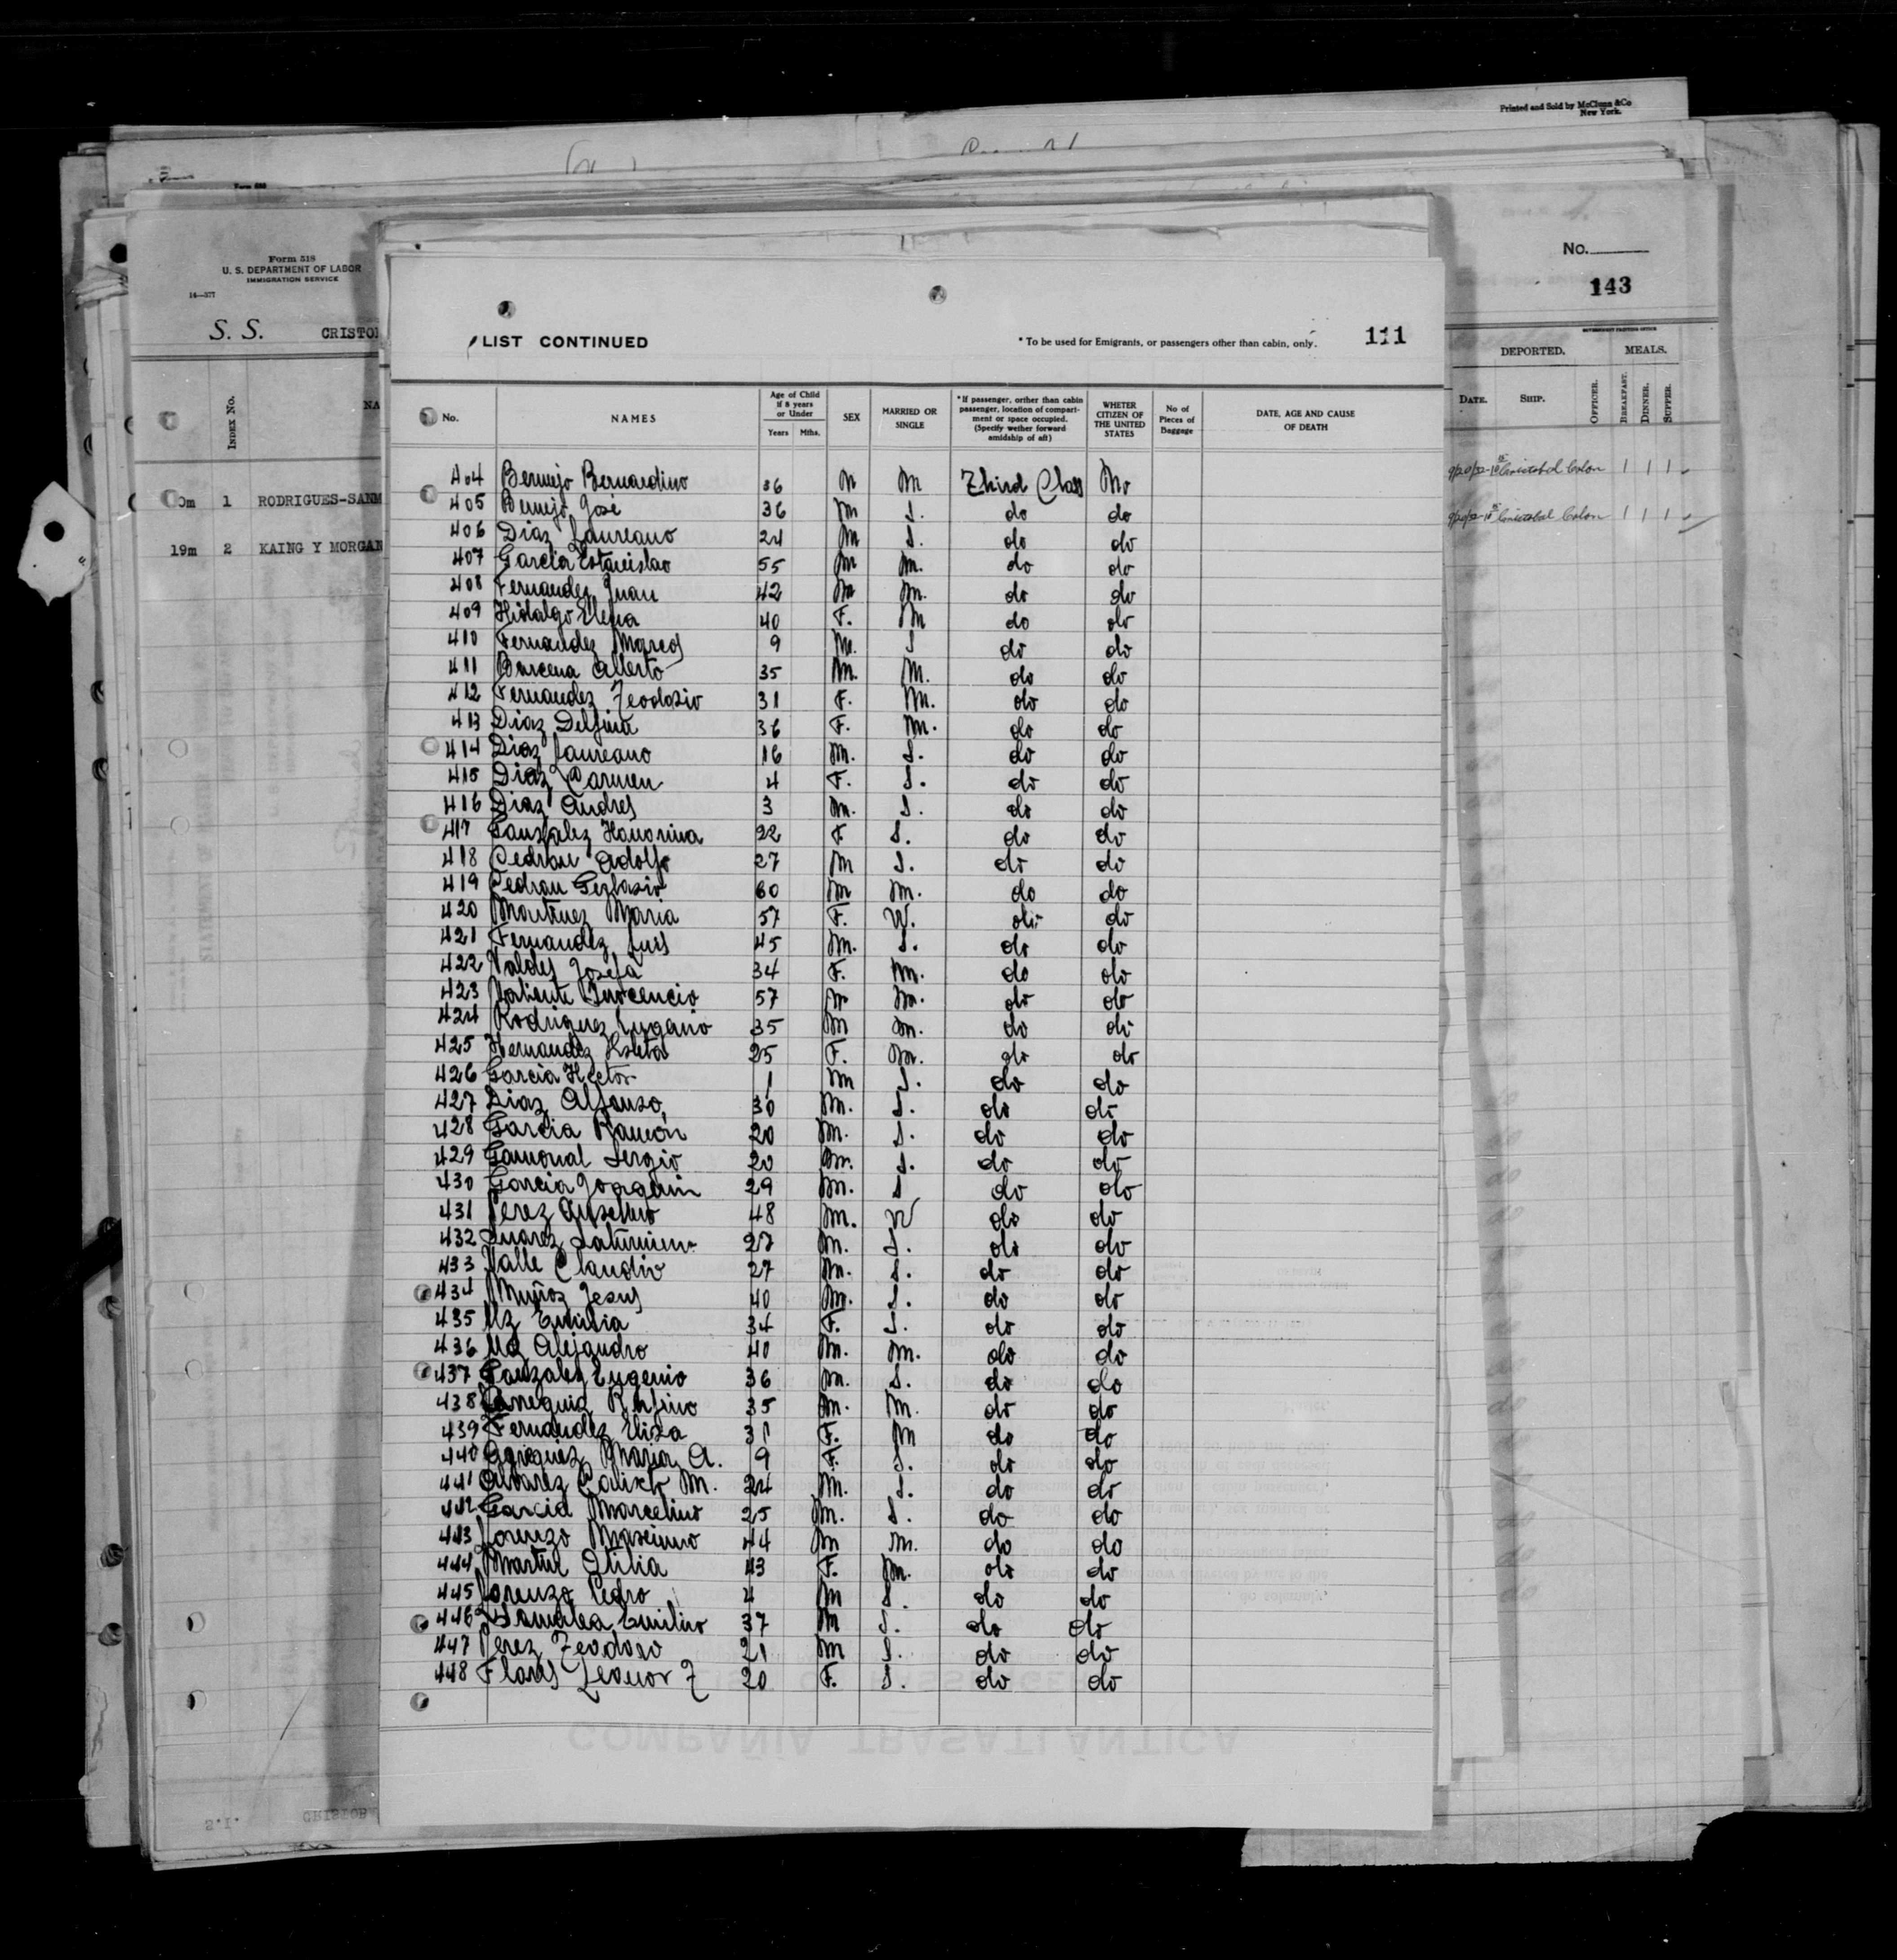 Printed and Sold by McClunn & Co
New York.
Form 518
U. S. DEPARTMENT OF LABOR
IMMIGRATION SERVICE
14—377
S. S. CRISTO
INDEX No.
NA
1 RODRIGUES-SANM
19m 2 KAING Y MORGAN
No.
143
GOVERNMENT PRINTING OFFICE
DEPORTED. MEALS.
DATE. SHIP. OFFICER. BREAKFAST. DINNER. SUPPER.
Cristobal Colon 1 1 1
Cristobal Colon 1 1 1
LIST CONTINUED * To be used for Emigrants, or passengers other than cabin, only. 111
No. NAMES Age of Child if 8 years or Under Years Mths. SEX MARRIED OR SINGLE * If passenger, orther than cabin passenger, location of compartment or space occupied. (Specify wether forward amidship of aft) WHETER CITIZEN OF THE UNITED STATES No of Pieces of Baggage DATE, AGE AND CAUSE OF DEATH
404 Bermejo Bernardino 36 M M Third Class No
405 Bermejo José 36 M S. do do
406 Diaz Laureano 24 M S. do do
407 Garcia Estanislao 55 M M. do do
408 Fernandez Juan 42 M M. do do
409 Hidalgo Elena 40 F. M do do
410 Fernandez Marcos 9 M. S do do
411 Barcena Alberto 35 M. M. do do
412 Fernandez Teodosio 31 F. M. do do
413 Diaz Delfina 36 F. M. do do
414 Diaz Laureano 16 M. S. do do
415 Diaz Carmen 4 F. S. do do
416 Diaz Andres 3 M. S. do do
417 Gonzalez Honorina 22 F S. do do
418 Pedran Adolfo 27 M S. do do
419 Pedran 60 M M. do do
420 Martinez Maria 57 F. W. do do
421 Fernandez Luis 45 M. S. do do
422 Valdes Josefa 34 F. M. do do
423 Valiente Inocencio 57 M M. do do
424 Rodriguez Eugenio 35 M M. do do
425 Hernandez 25 F. M. do do
426 Garcia Hector 1 M S. do do
427 Diaz Alfonso, 30 M. S. do do
428 Garcia Ramón 20 M. S. do do
429 Gamonal Sergio 20 M. S. do do
430 Garcia Joaquin 29 M. S do do
431 Perez Anselmo 48 M. W do do
432 Suarez Saturnino 27 M. S. do do
433 Valle Claudio 27 M. S. do do
434 Muñoz Jesus 40 M. S. do do
435 Uz Emilia 34 F. S. do do
436 Uz Alejandro 40 M. M. do do
437 Gonzalez Eugenio 36 M. S. do do
438 Rufino 35 M. M. do do
439 Fernandez Elisa 31 F. M do do
440 Maria A. 9 F. S. do do
441 Alvarez Calixto M. 24 M. S. do do
442 Garcia Marcelino 25 M. S. do do
443 Lorenzo Maximo 44 M M. do do
444 Martul Otilia 43 F. M. do do
445 Lorenzo Pedro 4 M S. do do
446 Emilio 37 M S. do do
447 Perez Teodoro 21 M S. do do
448 Flores Leonor Z 20 F. S. do do
COMPAÑIA TRASATLANTICA
S.I. CRISTOB